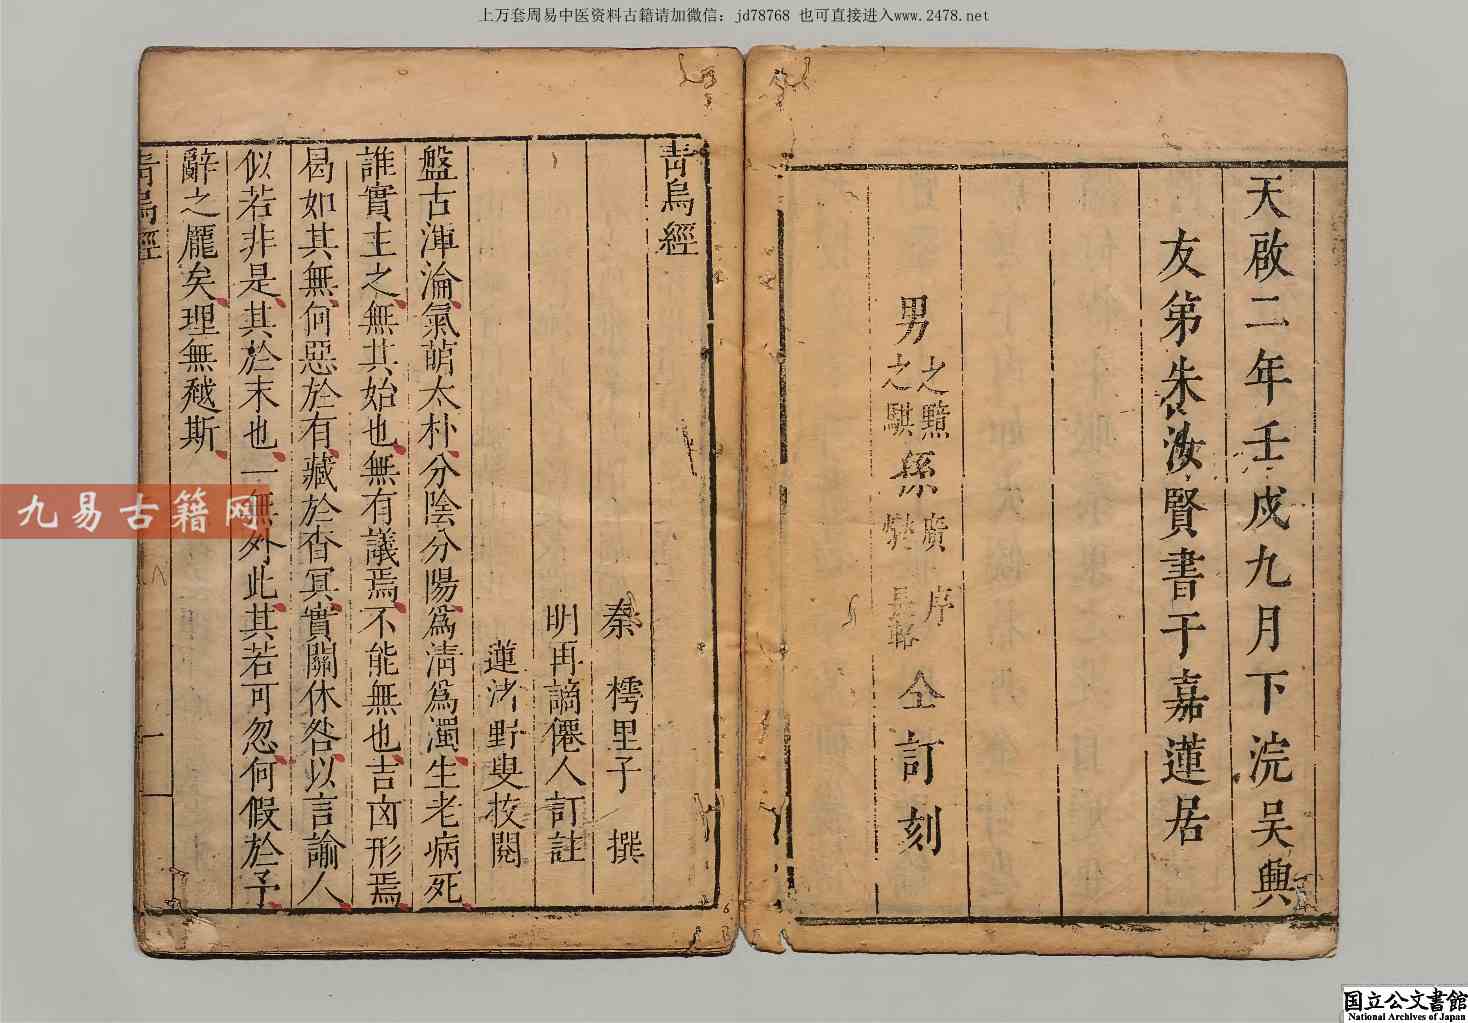 上万套周易中医资料古籍请加微信：jd78768 也可直接进入www.2478.net
天啟二年壬戌九月下浣吴興
友弟朱汝賢書于嘉蓮居
男之騏孫廣序仝訂刻
青烏經
秦 樗里子 撰
明再謫僊人訂註
蓮渚野叟挍閱
盤古渾淪氣萌太朴分陰分陽爲清爲濁生老病死
誰實主之無其始也無有議焉不能無也吉凶形焉
曷如其無何惡於有藏於杳冥實關休咎以言諭人
似若非是其於末也一無外此其若可忽何假於予
辭之龎矣理無越斯
青烏經
一
九易古籍网
国立公文書館
National Archives of Japan